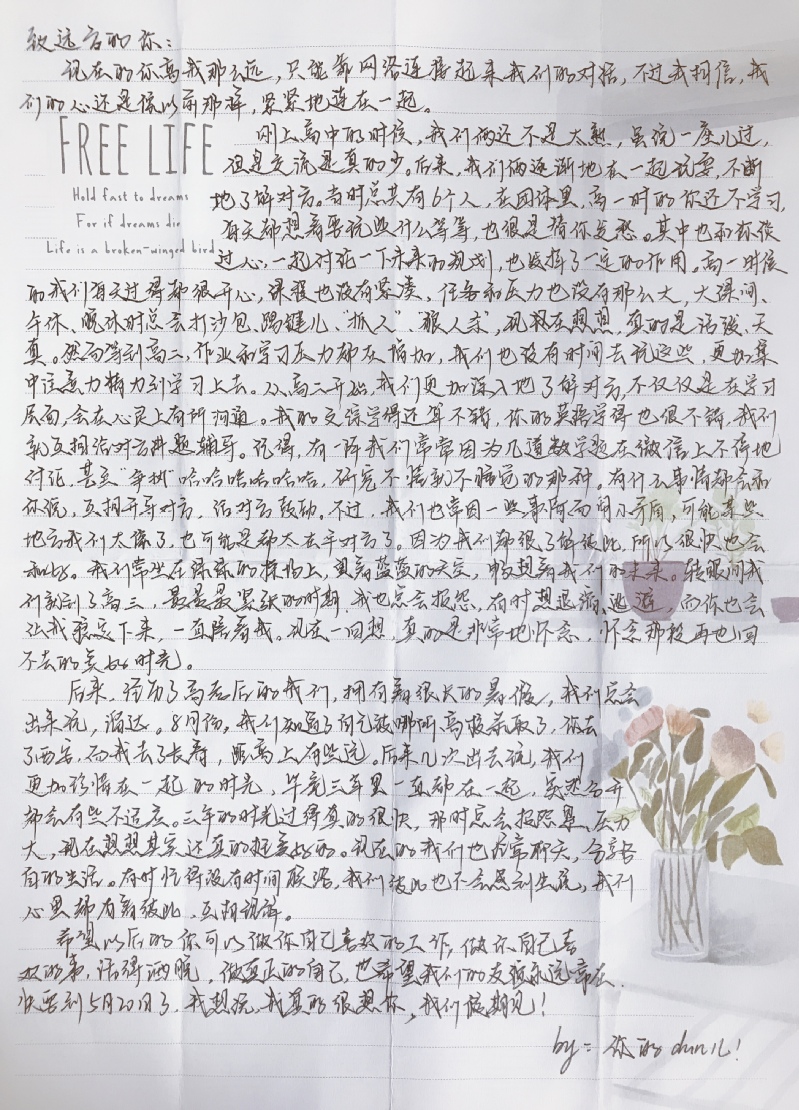 致远方的你：
现在的你离我那么远，只能靠网络连接起来我们的对话，不过我相信，我
们的心还是像以前那样，紧紧地连在一起。
FREE LIFE
Hold fast to dreams
For if dreams die
Life is a broken-winged bird
刚上高中的时候，我们俩还不是太熟，虽说一座儿过，
但是交流是真的少。后来，我们俩逐渐地在一起玩耍，不断
地了解对方。当时总共有6个人，在团体里，高一时的你还不学习，
每天都想着要玩些什么等等，也很是替你发愁。其中也和你谈
过心，一起讨论一下未来的规划，也发挥了一定的作用。高一时候
的我们每天过得都很开心，课程也没有紧凑，任务和压力也没有那么大，大课间、
午休、晚休时总会打沙包、踢键儿、"抓人"、"狼人杀"，现在想想，真的是活泼、天
真。然而等到高二，作业和学习压力都在增加，我们也没有时间去玩这些，更加集
中注意力精力到学习上去。从高二开始，我们更加深入地了解对方，不仅仅是在学习
层面，会在心灵上有所沟通。我的文综学得还算不错，你的英语学得也很不错，我们
就互相给对方讲题辅导。记得，有一阵我们常常因为几道数学题在微信上不停地
讨论，甚至"争执"哈哈哈哈哈哈，研究不情到不睡觉的那种。有什么事情都会和
你说，互相开导对方，给对方鼓励。不过，我们也常因一些事情而闹小矛盾，可能某些
地方我们太像了，也可能是都太在乎对方了。因为我们都很了解彼此，所以很快也会
和好。我们常坐在绿绿的操场上，望着蓝蓝的天空，畅想着我们的未来。转眼间我
们就到了高三，最最最紧张的时期，我也总会抱怨，有时想退缩、逃避，而你也会
让我稳定下来，一直陪着我。现在一回想，真的是非常地怀念，怀念那段再也回
不去的美好时光。
后来，经历了高考后的我们，拥有着很长的暑假，我们总会
出来玩，溜达。8月份，我们知道了自己被哪所高校录取了，你去
了西安，而我去了长春，距离上有些远。后来几次出去玩，我们
更加珍惜在一起的时光，毕竟三年里一直都在一起，突然分开
都会有些不适应。三年的时光过得真的很快，那时总会抱怨累、压力
大，现在想想其实还真的挺美好的。现在的我们也经常聊天，分享各
自的生活。有时忙得没有时间联络，我们彼此也不会感到生疏，我们
心里都有着彼此，互相理解。
希望以后的你可以做你自己喜欢的工作，做你自己喜
欢的事，活得洒脱，做真正的自己，也希望我们的友谊永远常在。
快要到5月20日了，我想说，我真的很想你，我们假期见！
by：你的dun儿！